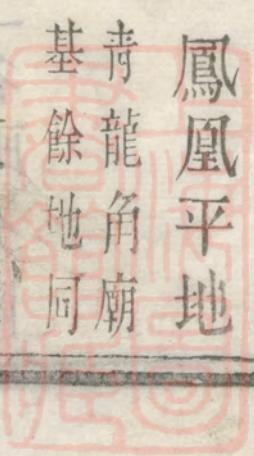 鳳凰平地
青龍角廟
基餘地同